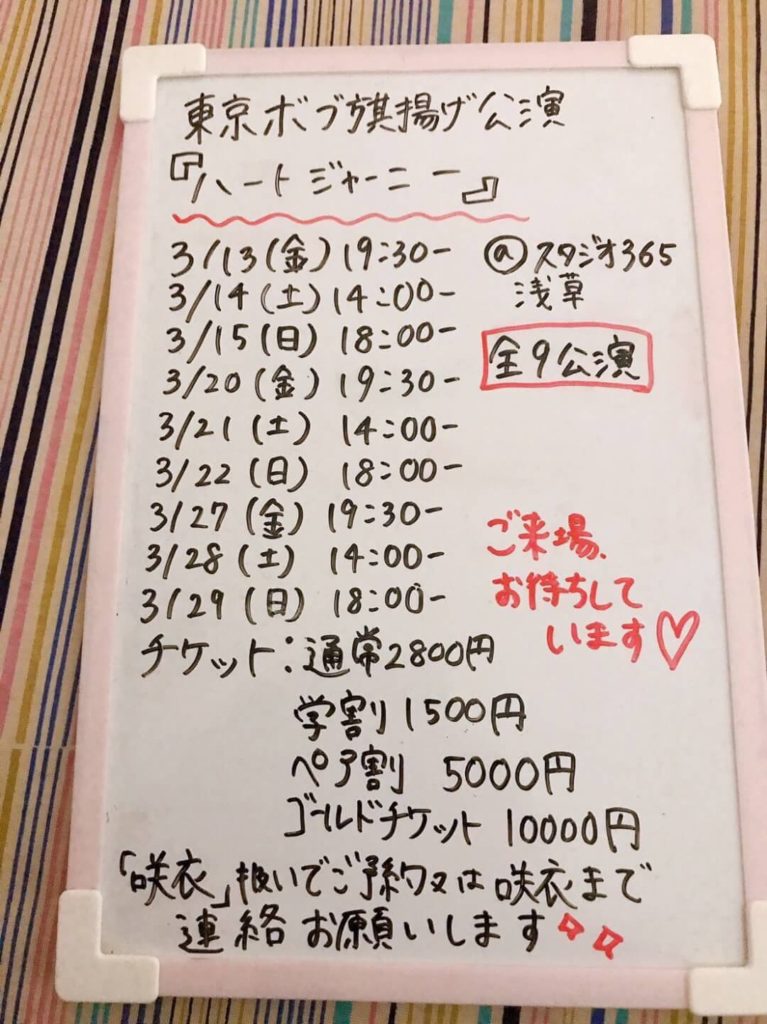 東京ボブ旗揚げ公演
『ハートジャーニー』
3/13(金) 19:30-
3/14(土) 14:00-
3/15(日) 18:00-
3/20(金) 19:30-
3/21(土) 14:00-
3/22(日) 18:00-
3/27(金) 19:30-
3/28(土) 14:00-
3/29(日) 18:00-
@スタジオ365
浅草
全9公演
ご来場、
お待ちして
います♡
チケット:通常2800円
学割1500円
ペア割 5000円
ゴールドチケット10000円
「咲衣」扱いでご予約又は咲衣まで
連絡お願いします